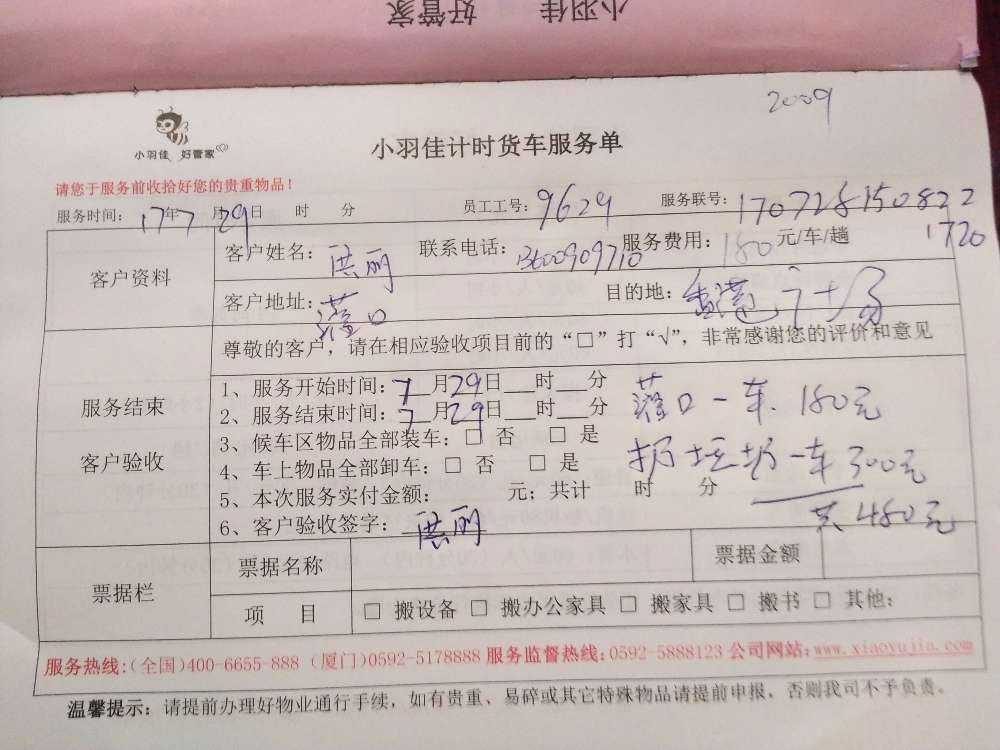 小羽佳 好管家
2009
小羽佳 好管家
小羽佳计时货车服务单
请您于服务前收拾好您的贵重物品！
服务时间: 17年7月29日 时 分 员工工号: 9629 服务联号: 170728150822
1720
客户资料 客户姓名: 洪丽 联系电话: 13600909710 服务费用: 180 元/车/趟
客户地址: 灌口 目的地:
尊敬的客户，请在相应验收项目前的“□”打“√”，非常感谢您的评价和意见
服务结束
客户验收
1、服务开始时间: 7月29日 时 分
2、服务结束时间: 7月29日 时 分
3、候车区物品全部装车: □ 否 □ 是
4、车上物品全部卸车: □ 否 □ 是
5、本次服务实付金额: 元; 共计 时 分
6、客户验收签字: 洪丽
灌口一车 180元
扔垃圾一车 300元
共480元
票据栏 票据名称 票据金额
项 目 □ 搬设备 □ 搬办公家具 □ 搬家具 □ 搬书 □ 其他:
服务热线:(全国)400-6655-888 (厦门)0592-5178888 服务监督热线:0592-5888123 公司网站:www.xiaoyujia.com
温馨提示: 请提前办理好物业通行手续，如有贵重、易碎或其它特殊物品请提前申报，否则我司不予负责。